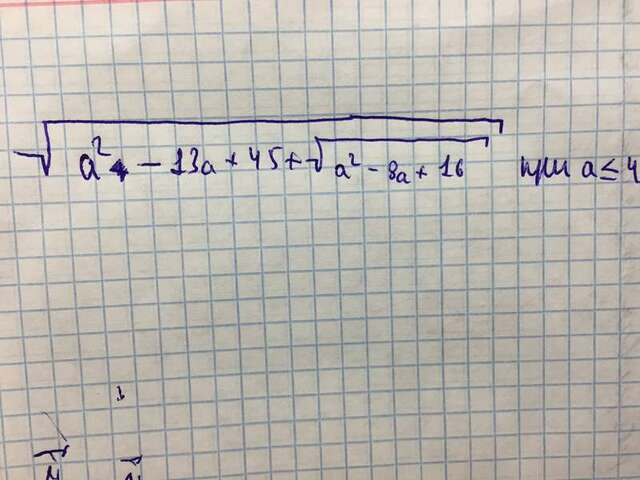 √(a² - 13a + 45 + √(a² - 8a + 16)) при a ≤ 4